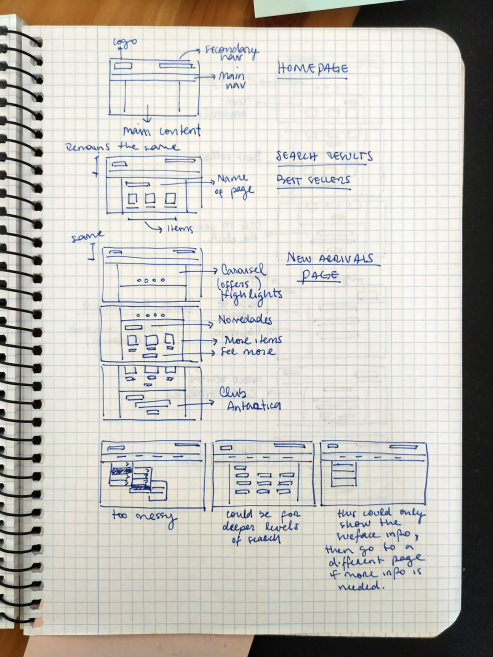 logo
secondary
nav
HOMEPAGE
Main
nav
main content
Remains the same
SEARCH RESULTS
BEST SELLERS
Name
of page
items
same
NEW ARRIVALS
PAGE
Carousel
(offers)
Highlights
Novedades
More items
See more
Club
Antartica
too messy
could be for
deeper levels
of search
this could only
show the
surface info,
then go to a
different page
if more info is
needed.